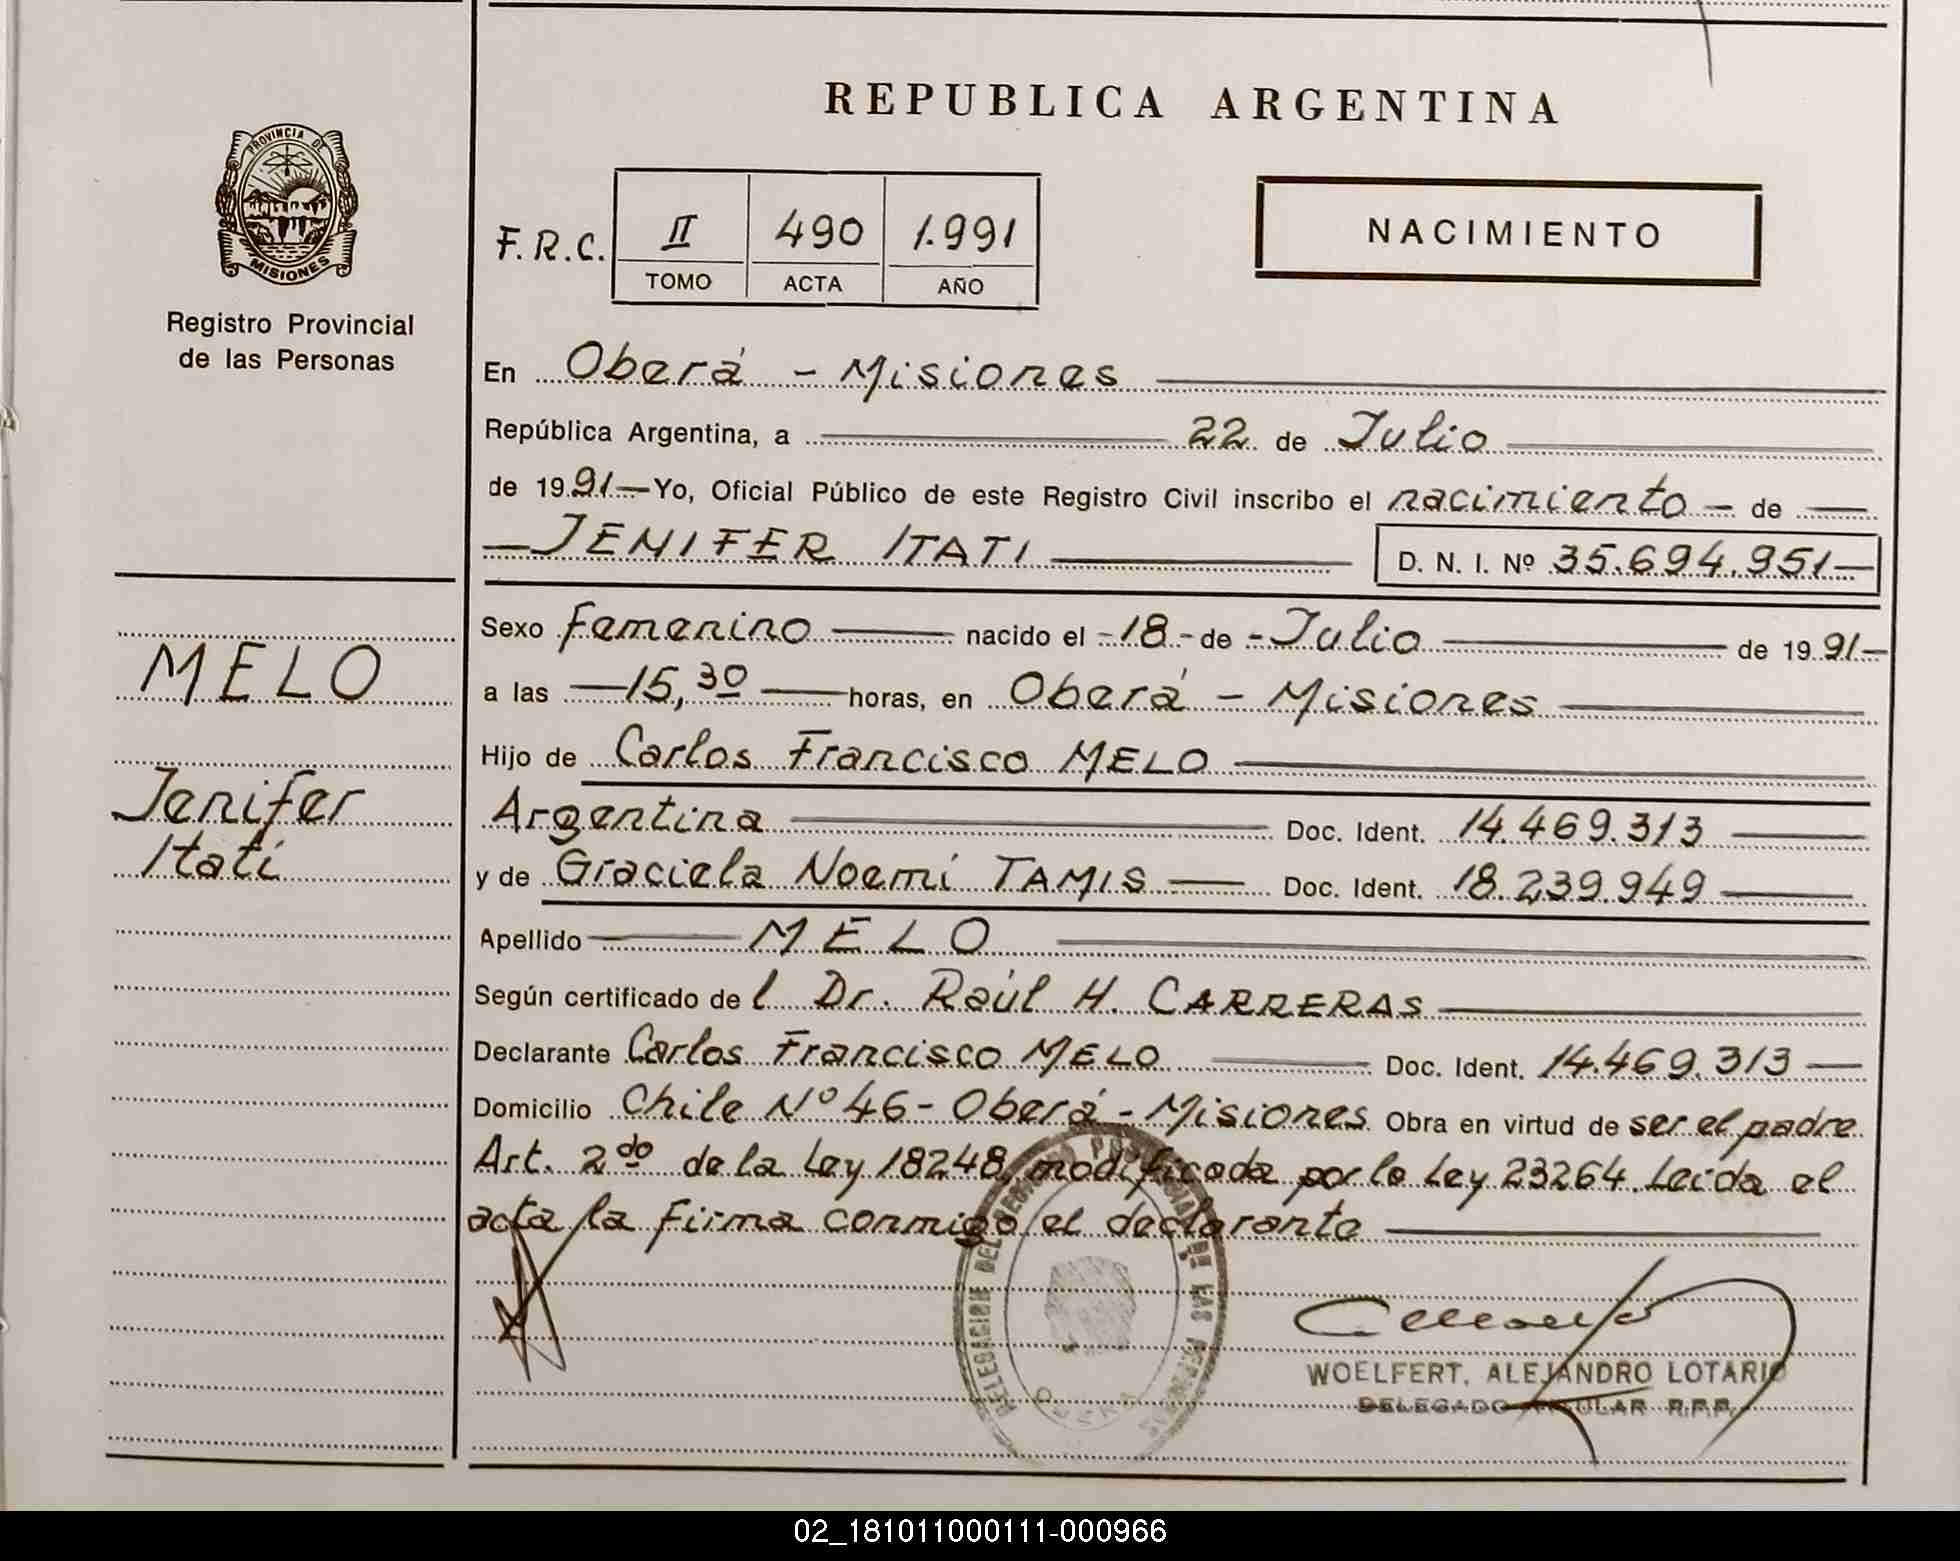 REPUBLICA ARGENTINA
PROVINCIA DE
MISIONES
Registro Provincial
de las Personas
F.R.C. II 490 1.991
TOMO ACTA AÑO
NACIMIENTO
En Oberá - Misiones
República Argentina, a 22 de Julio
de 1991 Yo, Oficial Público de este Registro Civil inscribo el nacimiento - de
JENIFER ITATI D. N. I. Nº 35.694.951
MELO
Jenifer
Itatí
Sexo femenino nacido el -18- de - Julio de 1991
a las 15,30 horas, en Oberá - Misiones
Hijo de Carlos Francisco MELO
Argentina Doc. Ident. 14.469.313
y de Graciela Noemí TAMIS Doc. Ident. 18.239.949
Apellido MELO
Según certificado del Dr. Raúl H. CARRERAS
Declarante Carlos Francisco MELO Doc. Ident. 14.469.313
Domicilio Chile Nº 46 - Oberá - Misiones Obra en virtud de ser el padre
Art. 2do de la Ley 18248, modificada por la Ley 23264. Leida el
acta la firma conmigo el declarante
DELEGACION DEL REGISTRO PROVINCIAL DE LAS PERSONAS
WOELFERT, ALEJANDRO LOTARIO
DELEGADO TITULAR R.P.P.
02_181011000111-000966